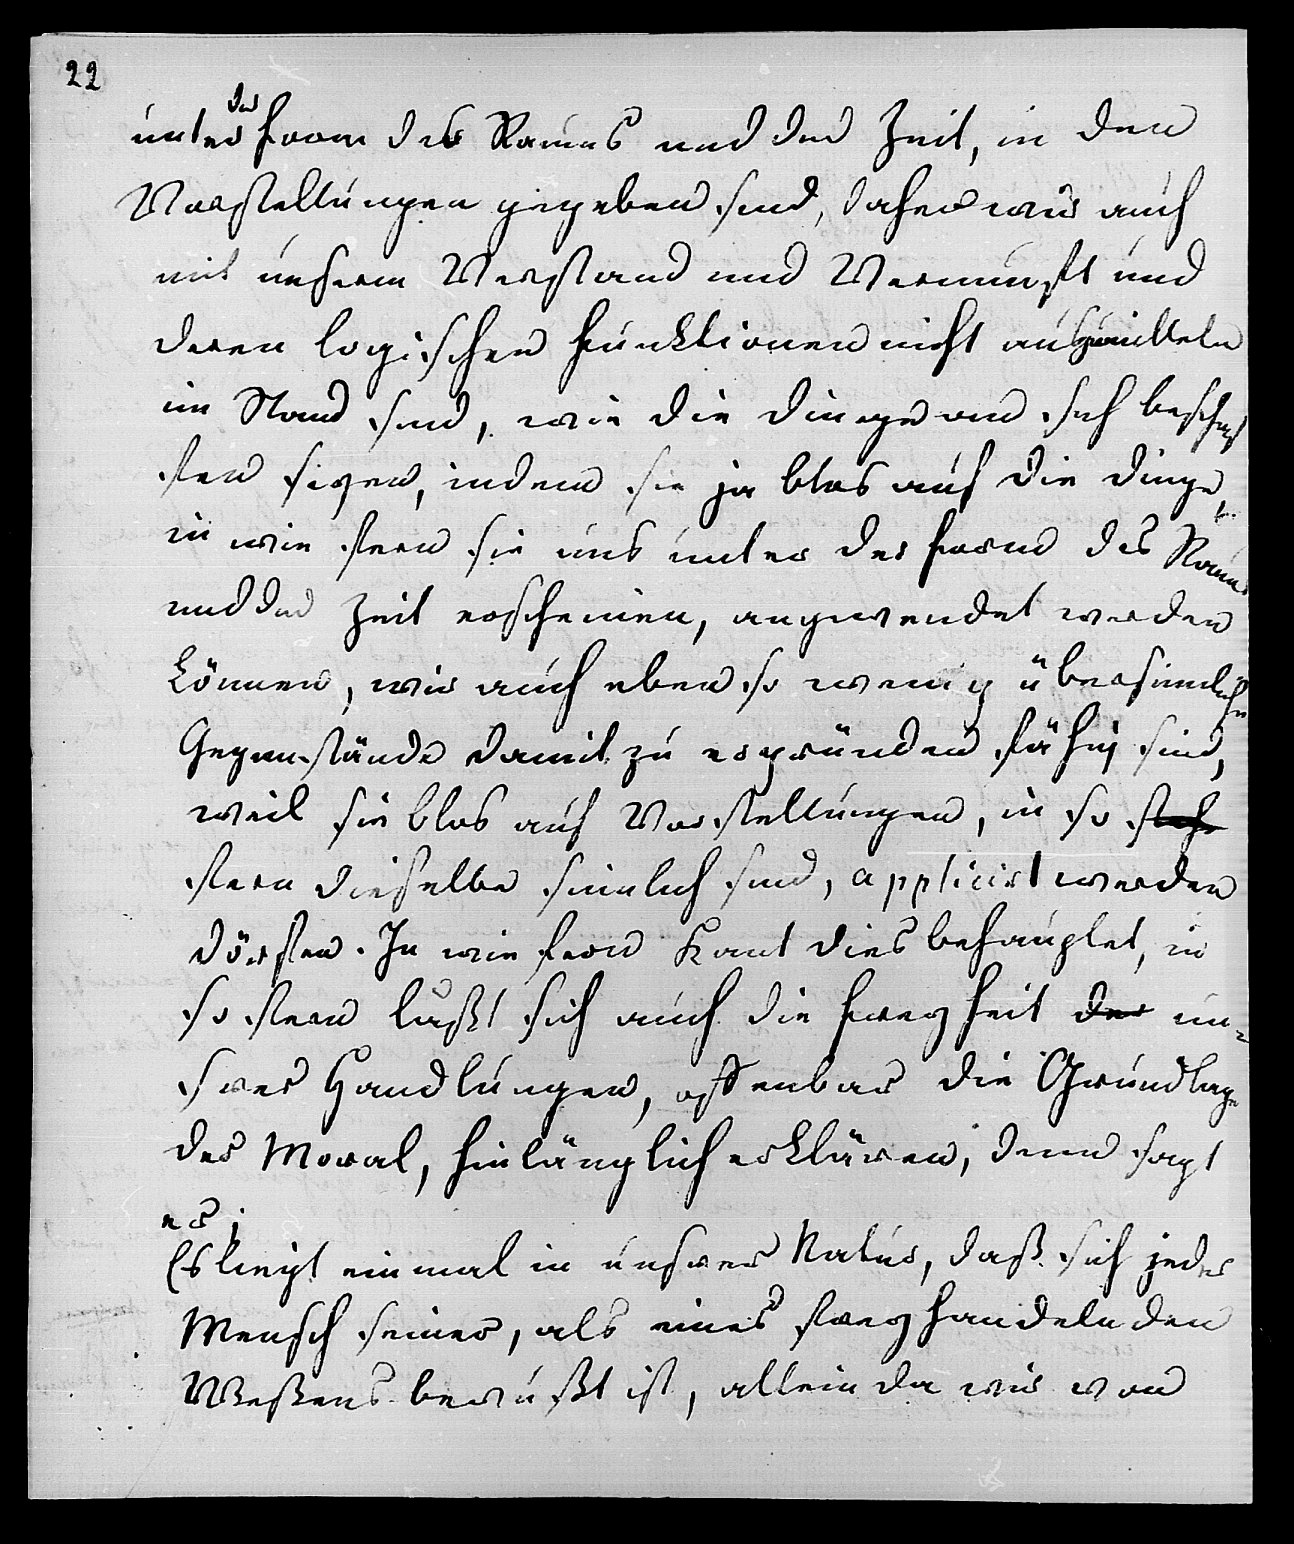 22
der
unter Form des Raums und der Zeit, in den
Vorstellungen gegeben sind, daher wir auch
mit unserm Verstand und Vernunft und
deren logischen Funktionen nicht auszumitteln
im Stand sind, wie die Dinge an sich beschaf
fen seyen, indem sie ja blos auf die Dinge,
in wie fern sie uns unter der Form des Raums
und der Zeit erscheinen, angewendet werden
können, wir auch eben so wenig übersinnliche
Gegenstände damit zu ergründen fähig sind,
weil sie blos auf Vorstellungen, in so
fern dieselbe sinnlich sind, applicirt werden
dörfen. In wie fern Kant dies behauptet, in
so fern laßt sich auch die Freyheit der un-
srer Handlungen, offenbar die Grundlage
der Moral, hinlänglich erklären, denn sagt
er;
Es liegt einmal in unsrer Natur, daß sich jeder
Mensch seiner, als eines frey handelnden
Weßens bewußt ist, allein da wir von